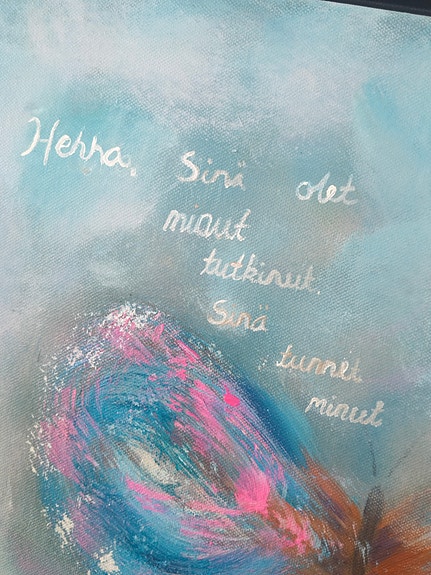 Herra, Sinä olet
minut
tutkinut.
Sinä
tunnet
minut